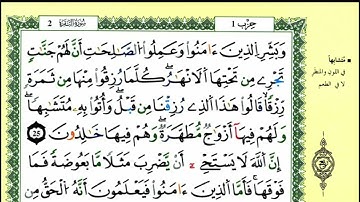 حزب 1
سورة البقرة 2
وَبَشِّرِ الذِينَ ءَامَنُوا وَعَمِلُوا الصَّالِحَاتِ أَنَّ لَهُمْ جَنَّٰتٍ
تَجْرِے مِن تَحْتِهَا اَلَانْهَٰرُ كُلَّمَا رُزِقُوا مِنْهَا مِن ثَمَرَةٍ
رِّزْقاً قَالُوا هَٰذَا اَلذِے رُزِقْنَا مِن قَبْلُ وَأُتُوا بِهِۦ مُتَشَٰبِهاً
وَلَهُمْ فِيهَا أَزْوَٰجٌ مُّطَهَّرَةٌ وَهُمْ فِيهَا خَٰلِدُونَ 25
إِنَّ اَللَّهَ لَا يَسْتَحْيِۦ أَنْ يَّضْرِبَ مَثَلاً مَّا بَعُوضَةً فَمَا
فَوْقَهَا فَأَمَّا اَلذِينَ ءَامَنُوا فَيَعْلَمُونَ أَنَّهُ اُلْحَقُّ مِن
• متشابها
في اللون والمنظر
لا في الطعم